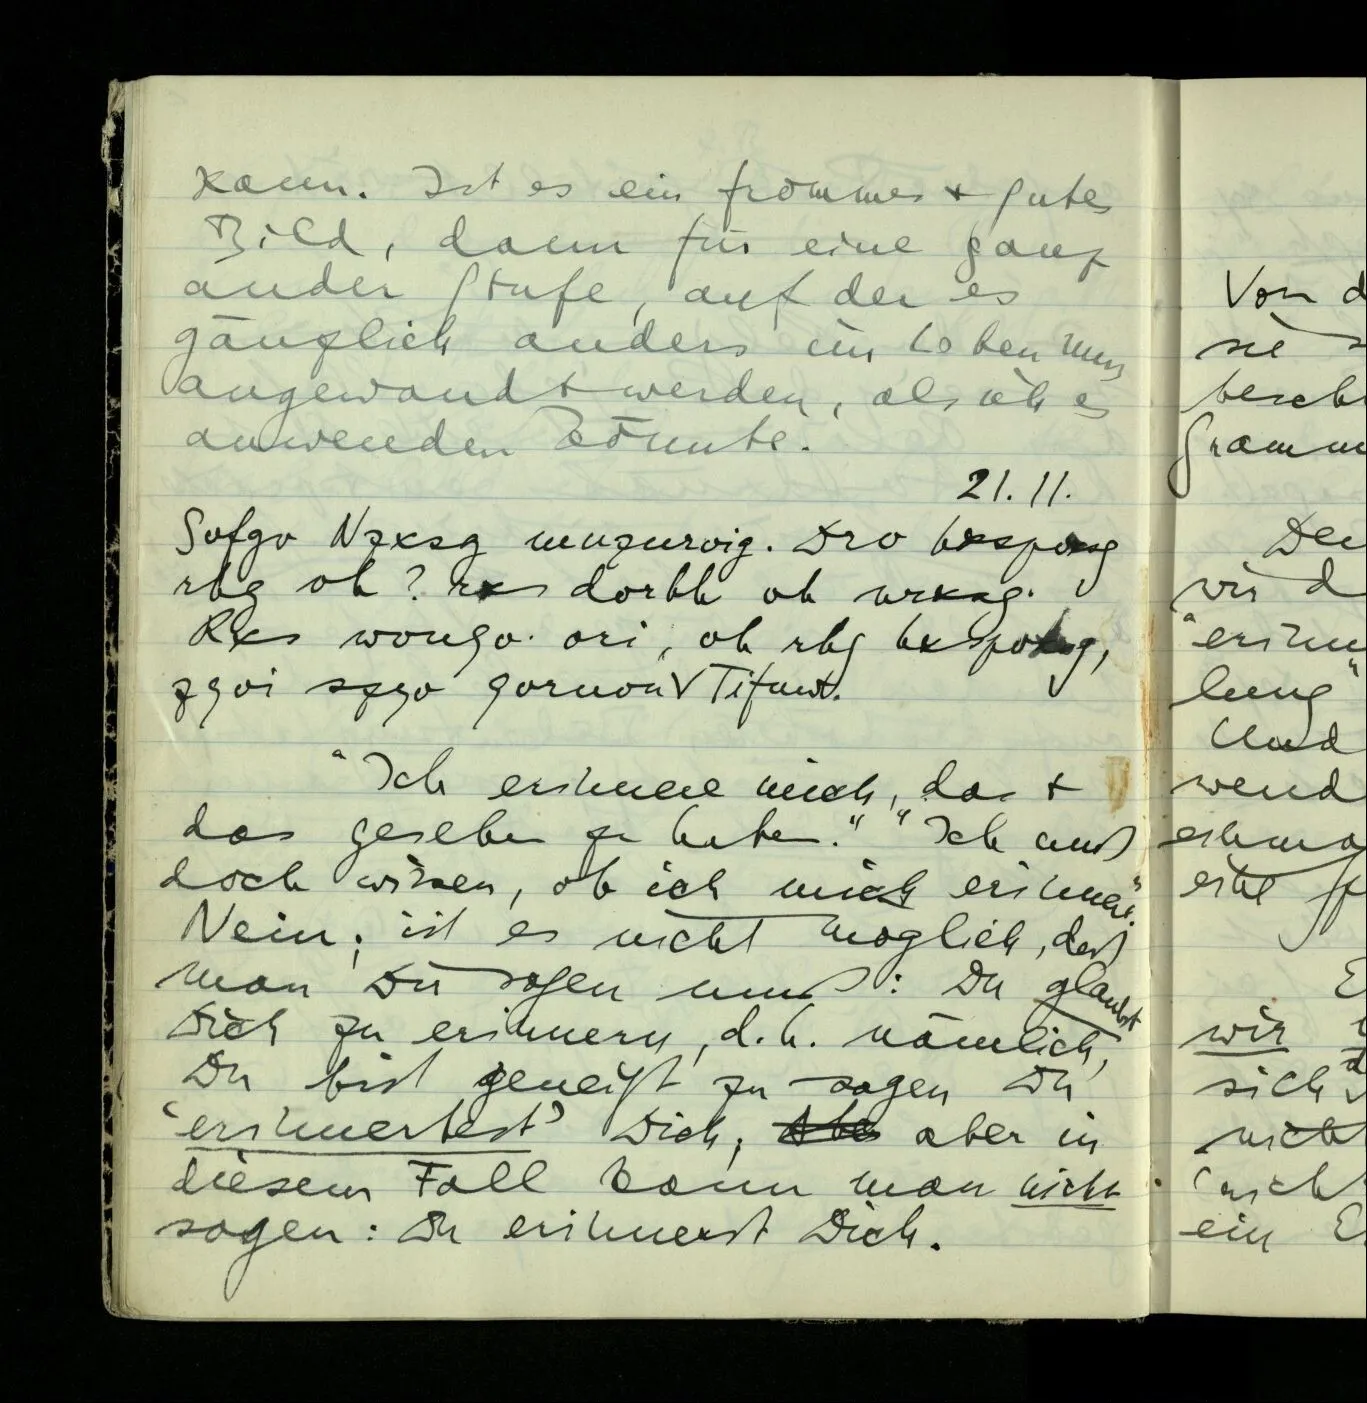 kann. Ist es ein frommes + gutes
Bild, dann für eine ganz
ander Stufe, auf der es
gänzlich anders im Leben muss
angewandt werden, als ich es
anwenden könnte.
21.11.
rbg oh? rxs dorhh oh
Rxs wongo. ori, oh rbg
"Ich erinnere mich, das +
das gesehen zu haben." "Ich muß
doch wissen, ob ich mich erinnere".
Nein; ist es nicht möglich, daß
man Dir sagen muß: Du glaubst
Dich zu erinnern, d.h. nämlich,
Du bist geneigt zu sagen Du
'erinnertest' Dich; aber in
diesem Fall kann man nicht
sagen: Du erinnerst Dich.
Von d
sie
beschr
Gramm
Den
wir d
"erinn
lung"
Und
wend
wir
sich
nicht
ein